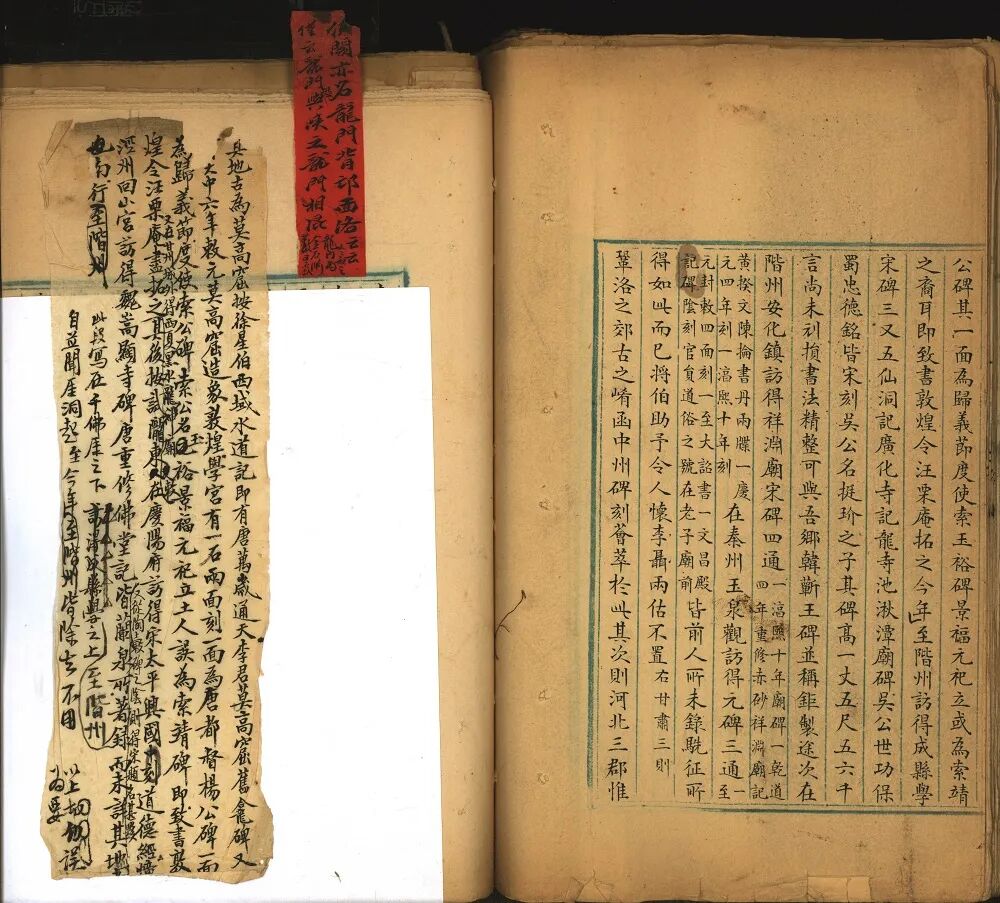 公碑其一面為歸義節度使索玉裕碑景福元祀立或為索靖
之裔耳即致書敦煌令汪栗庵拓之今年至階州訪得成縣學
宋碑三又五仙洞記廣化寺記龍寺池湫潭廟碑吳公世功保
蜀忠德銘皆宋刻吳公名挺玠之子其碑高一丈五尺五六千
言尚未刓損書法精整可與吾鄉韓蘄王碑並稱鉅製途次在
階州安化鎮訪得祥淵廟宋碑四通一淳熙十年廟碑一乾道四年重修赤砂祥淵廟記
黃揆文陳掄書丹兩牒一慶元四年刻一淳熙十年刻在秦州玉泉觀訪得元碑三通一至
元封敕四面刻一至大詔書一文昌殿記碑陰刻官員道俗之號在老子廟前皆前人所未錄駪征所
得如此而已將伯助予令人懷李聶兩估不置右甘肅三則
鞏洛之郊古之崤函中州碑刻薈萃於此其次則河北三郡惟
伊闕亦名龍門背邙面洛云云
僅云龍門與陝之龍門相混
其地古為莫高窟按徐星伯西域水道記即有唐萬歲通天李君莫高窟舊龕碑又
大中六年敕元莫高窟造象敦煌學宮有一石兩面刻一面為唐都督楊公碑一面
為歸義節度使索公碑索公名玉裕景福元祀立土人誤為索靖碑即致書敦
煌令汪栗庵盡拓之其後按試隴東在慶陽府訪得宋太平興國十刻道德經幢
涇州回山宮訪得魏嵩顯寺碑唐重修佛堂記皆蘭泉所著錄而未詳其地
也旬行至階州
此段寫在千佛厓之下訪得成縣學之上至階州
自並聞厓洞起至今年至階州皆除去不用
以上切切誤
為要